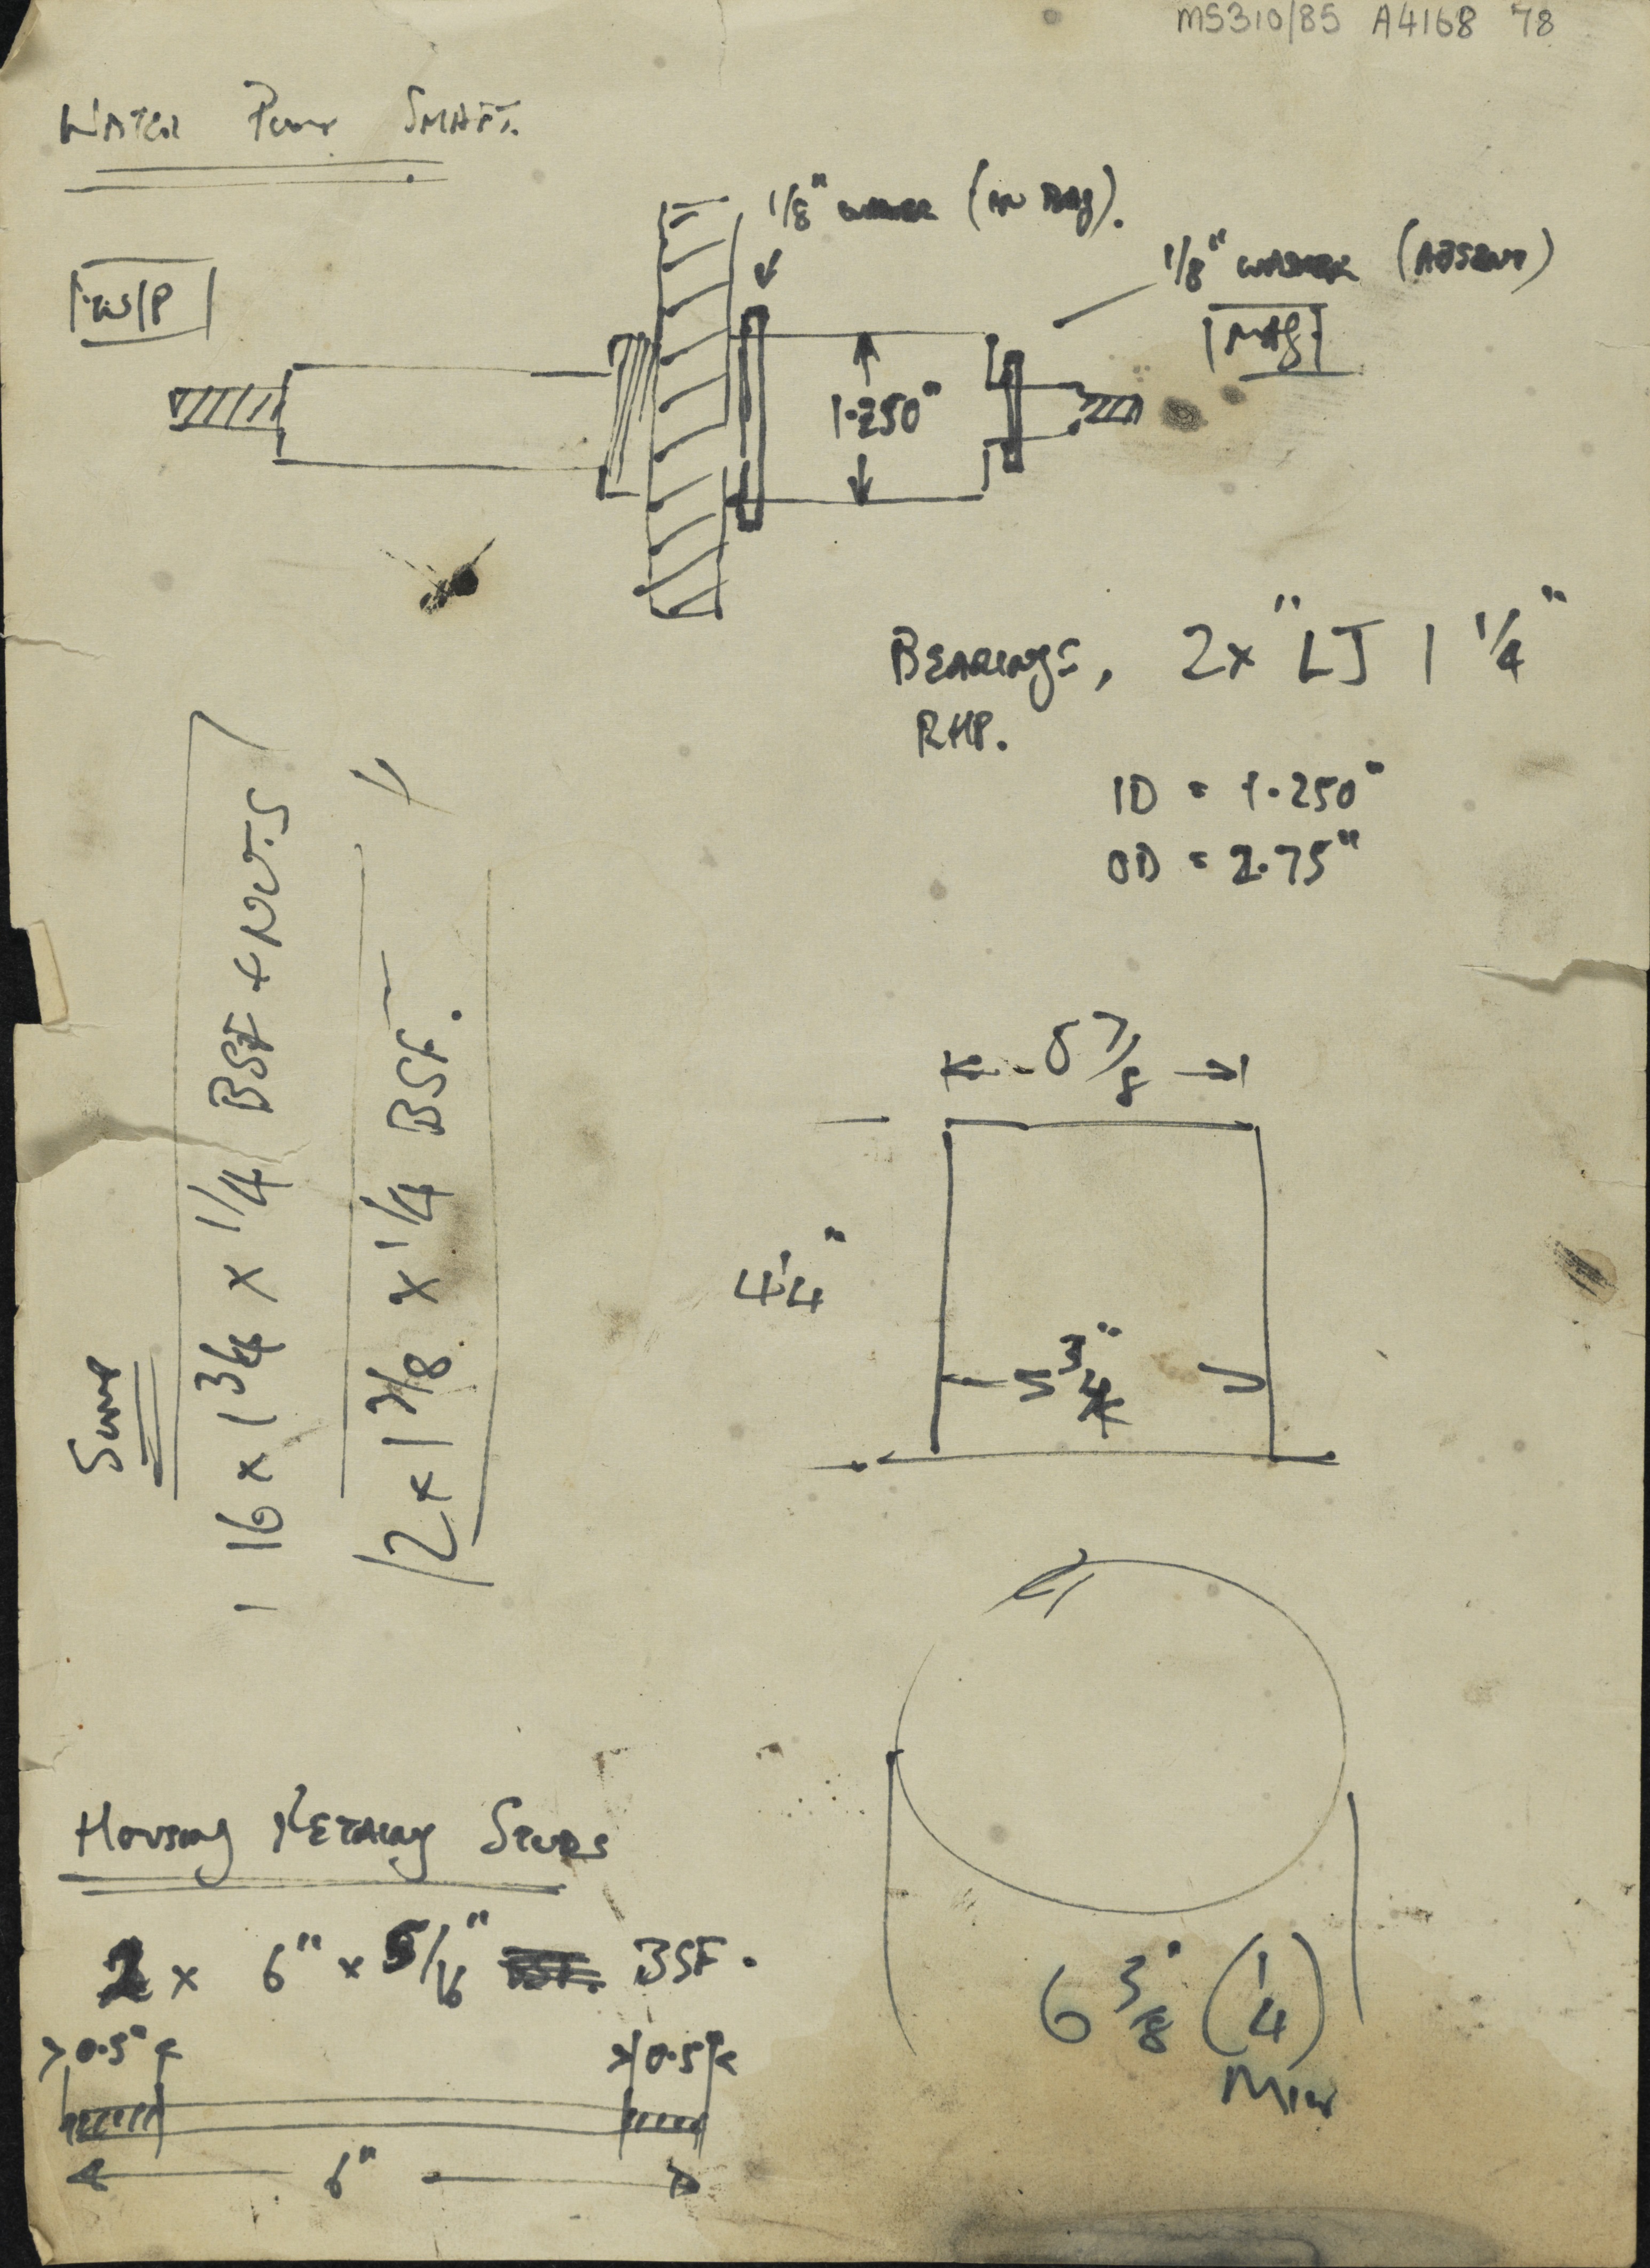 MS310/85 A4168 78
WATER PUMP SHAFT.
1/8" WASHER (IN BAG).
1/8" WASHER (ABSENT)
W/P
MAG
1.250"
BEARINGS, 2x "LJ 1 1/4"
RHP.
ID = 1.250"
OD = 2.75"
SUMP
16 x 1 3/4 x 1/4 BSF + NUTS
2 x 1 7/8 x 1/4 BSF.
5 7/8
4 1/4"
5 3/4"
6 3/8" (1/4)
MIN
HOUSING RETAINING STUDS
2 x 6" x 5/16" BSF.
0.5"
0.5"
6"